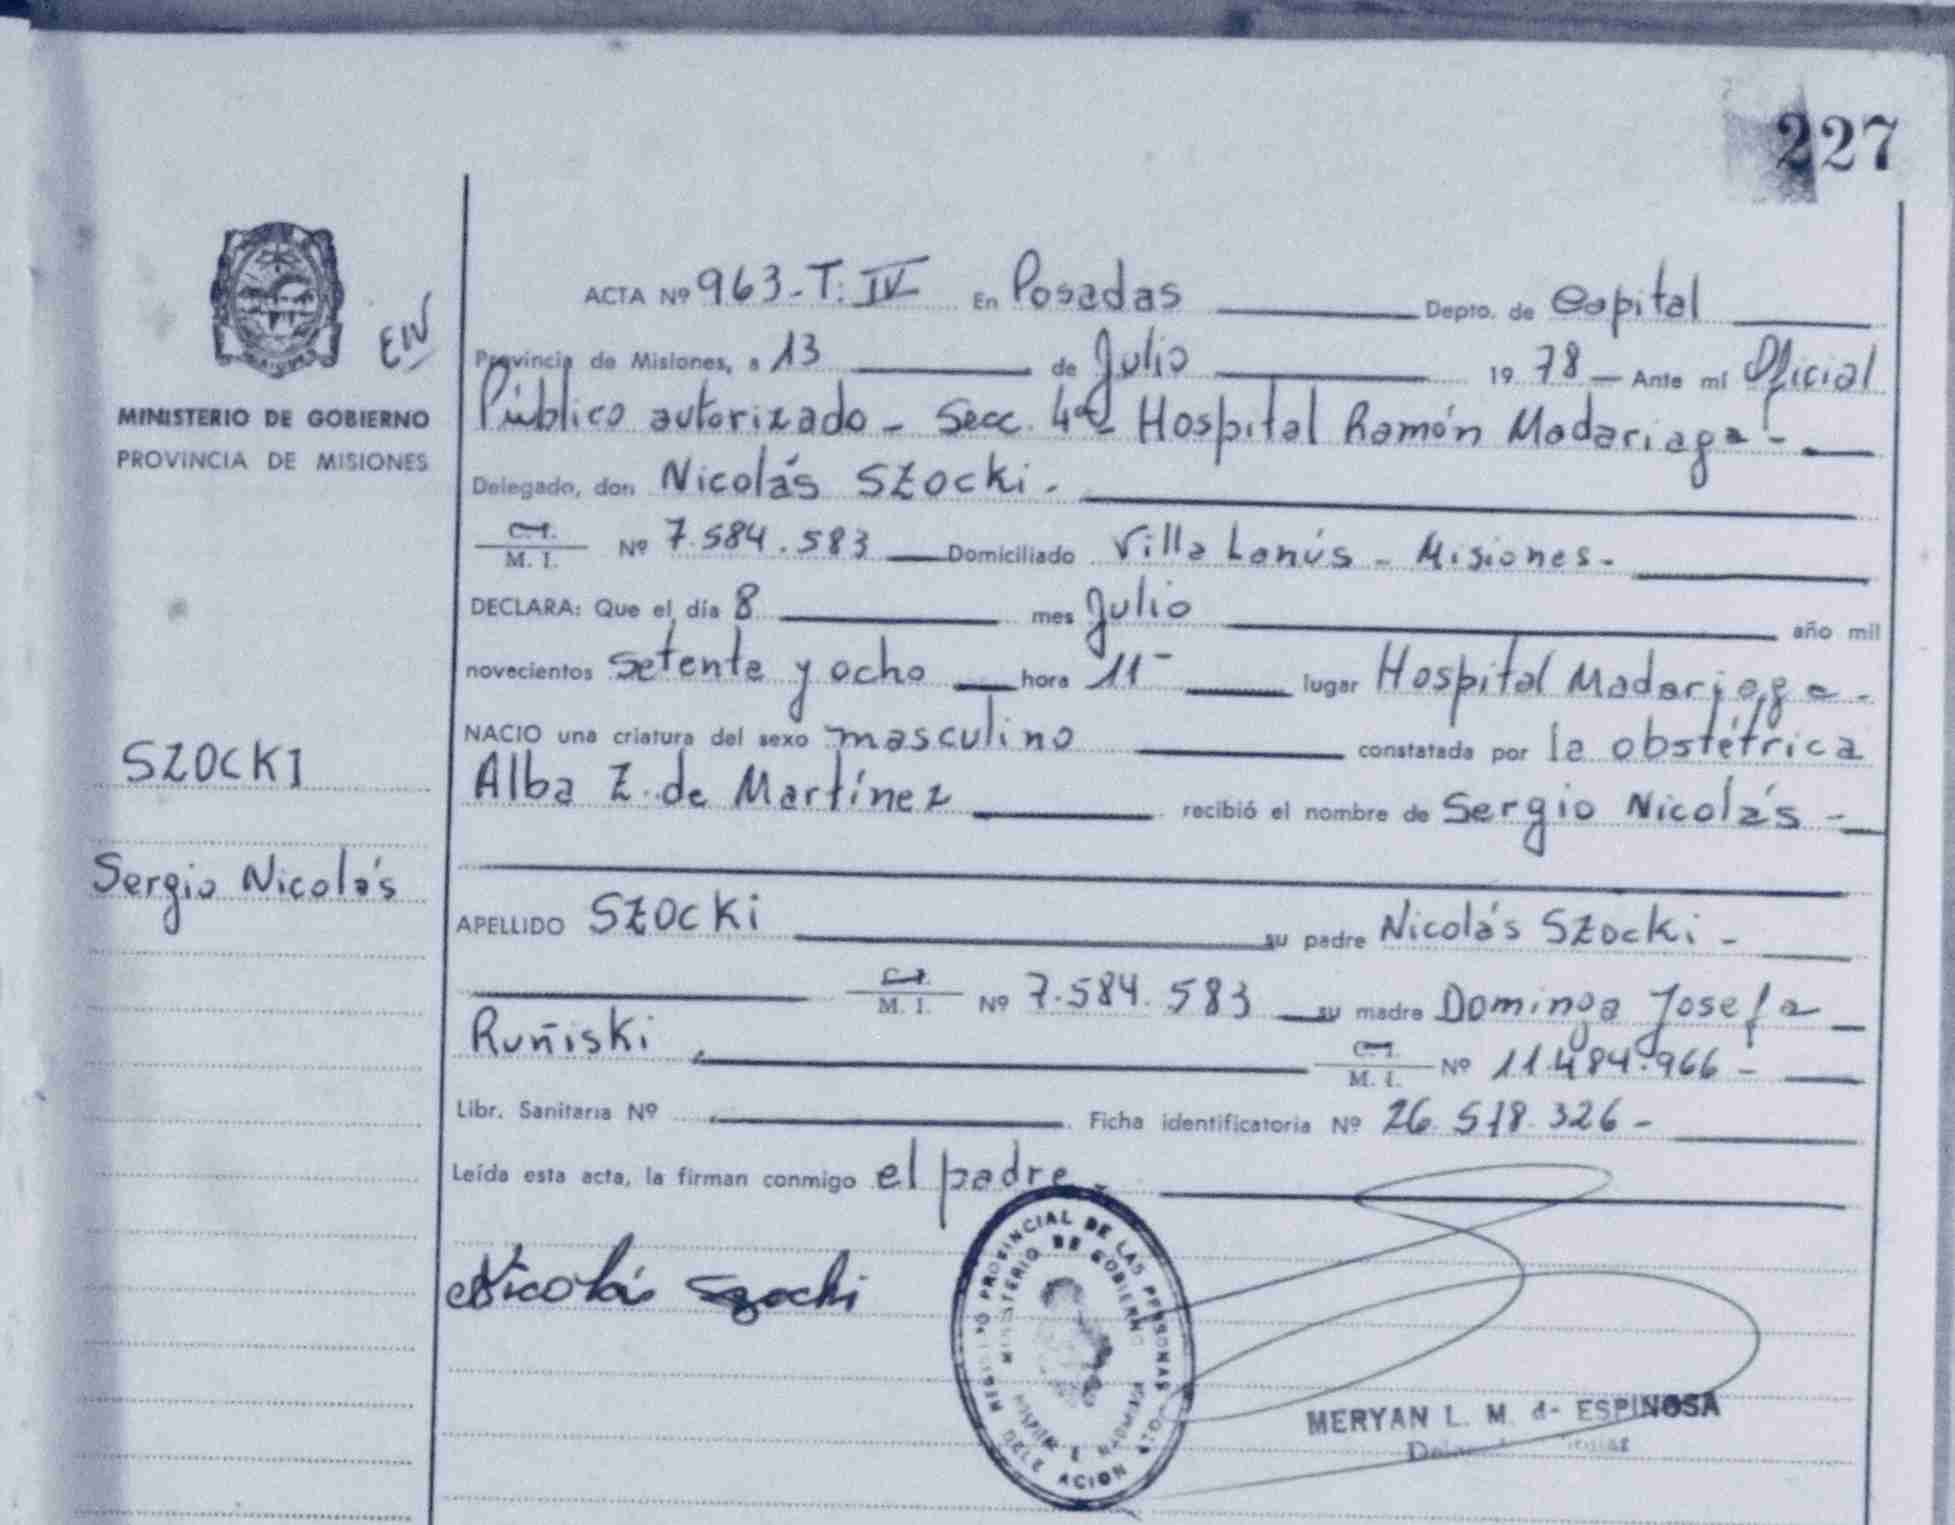 227
MINISTERIO DE GOBIERNO
PROVINCIA DE MISIONES
SZOCKI
Sergio Nicolás
ACTA Nº 963-T. IV En Posadas Depto. de Capital
Provincia de Misiones, a 13 de Julio 1978 — Ante mí Oficial
Público autorizado - Secc. 4ª Hospital Ramón Madariaga -
Delegado, don Nicolás SZocki.
C. I.
M. I. Nº 7.584.583 Domiciliado Villa Lanús - Misiones -
DECLARA: Que el día 8 mes Julio año mil
novecientos setenta y ocho hora 11- lugar Hospital Madariaga -
NACIO una criatura del sexo masculino constatada por la obstétrica
Alba Z. de Martínez recibió el nombre de Sergio Nicolás -
APELLIDO SZOCKi su padre Nicolás SZocki -
C. I.
M. I. Nº 7.584.583 su madre Dominga Josefa
Ruñiski
C. I.
M. I. Nº 11.484.966 -
Libr. Sanitaria Nº Ficha identificatoria Nº 26.518.326 -
Leída esta acta, la firman conmigo el padre -
Nicolás Szocki
REGISTRO PROVINCIAL DE LAS PERSONAS
MINISTERIO DE GOBIERNO
MERYAN L. M. de ESPINOSA